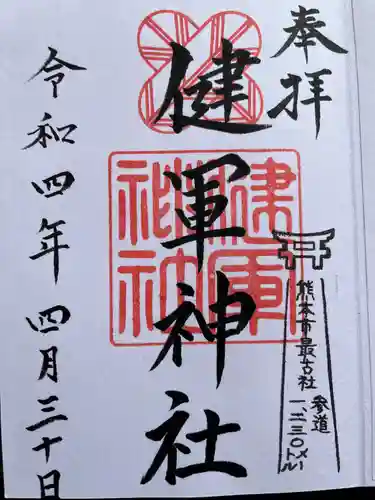 奉拝
健軍神社
健軍神社
熊本市最古社
参道
一、二三〇メートル
令和四年 四月三十日